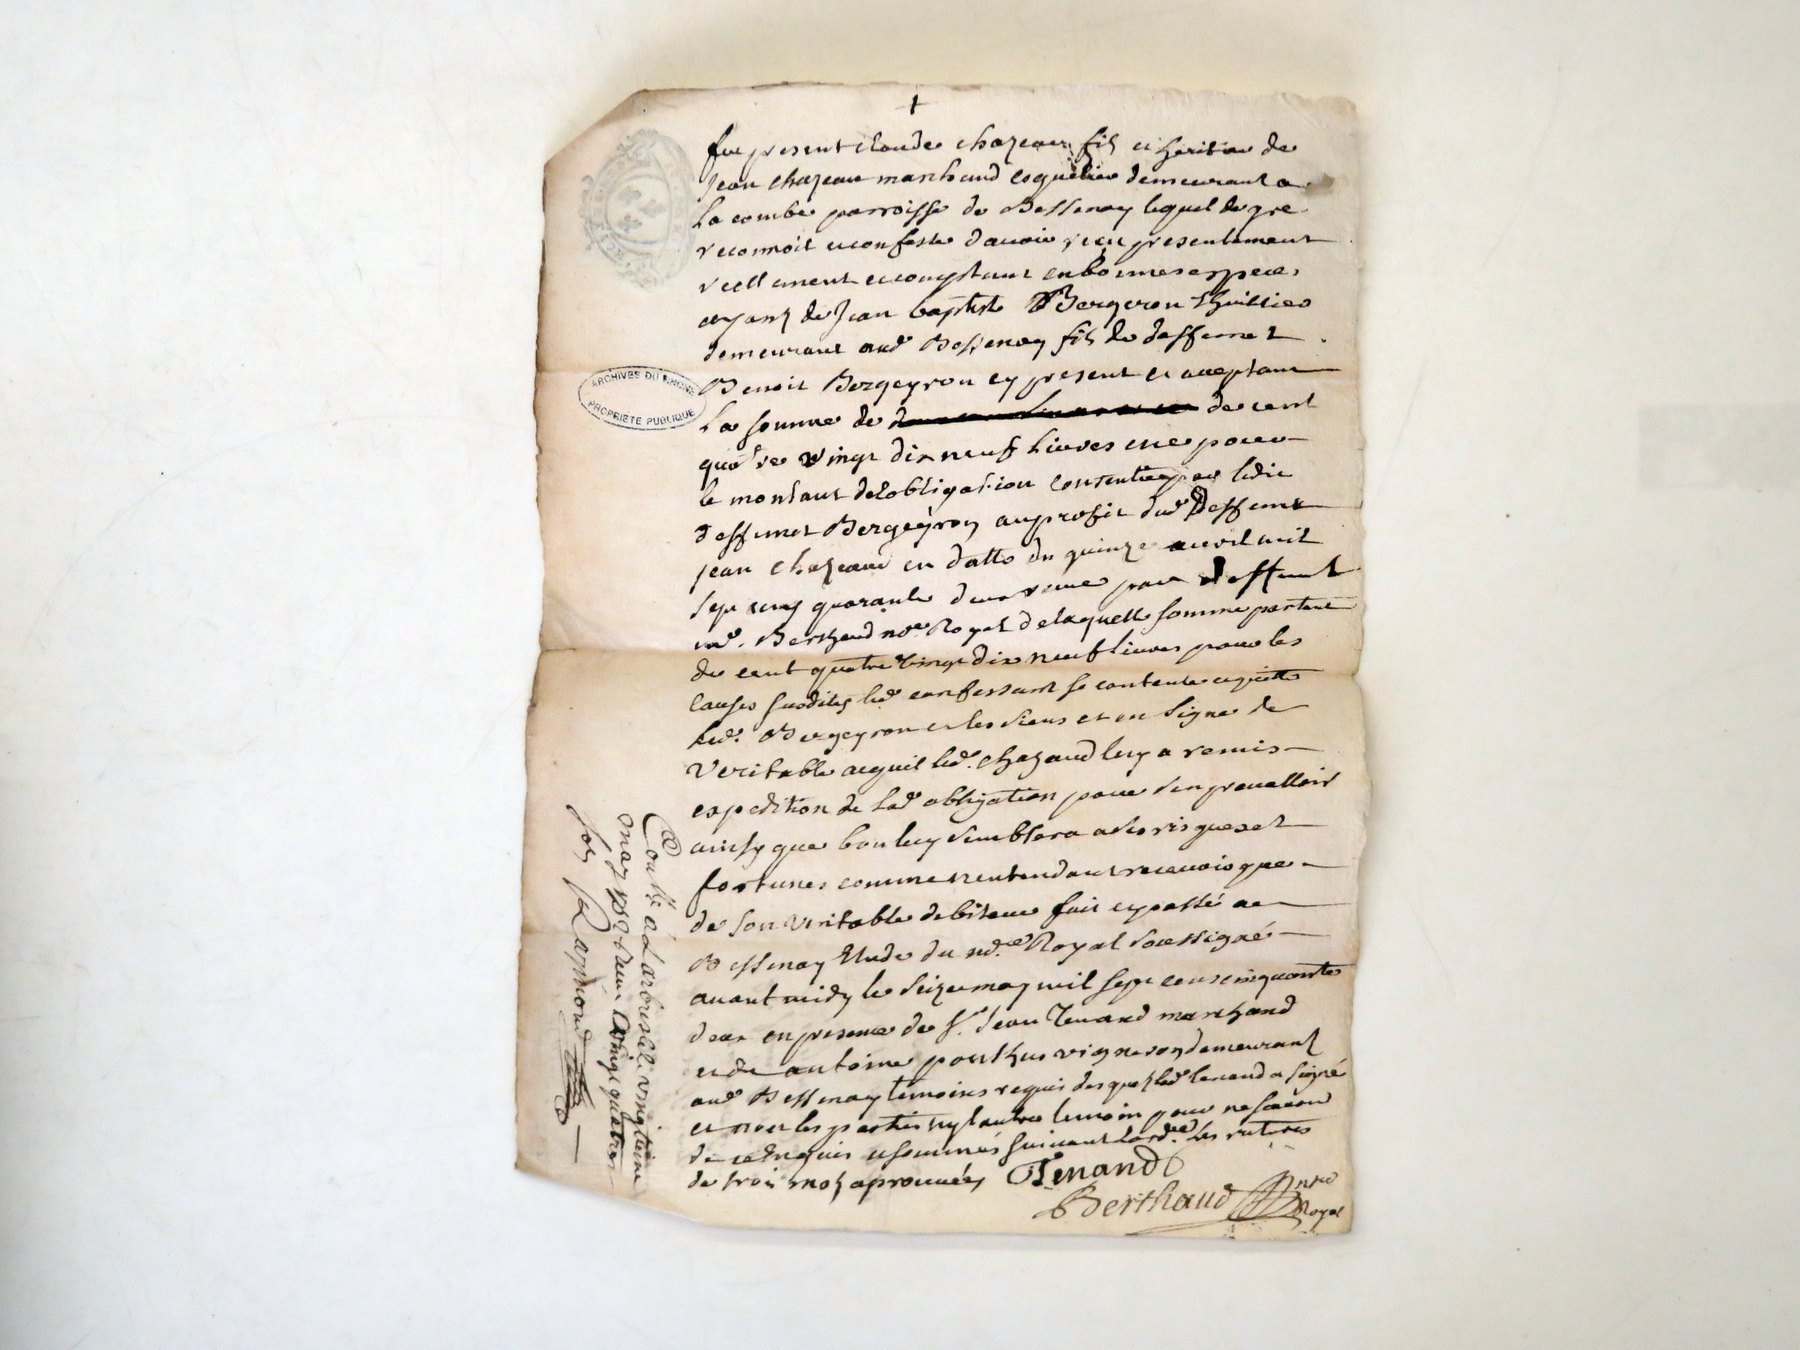 +
fut present Claude chazeau fils et heritier de
Jean chazeau marchand coquetier demeurant a
La combe parroisse de Bessenay lequel de gre
reconnoit et confesse d'avoir reçu presentement
reellement et comptant en bonnes especes
ayans de Jean baptiste Bergeron thuillier
demeurant aud Bessenay fils de deffunct
Benoit Bergeyron cy present et acceptant
La somme de de cent
quatre vingt dix neuf livres et ce pour
le montant de lobligation consentie par ledit
deffunct Bergeyron au profit dud deffunt
Jean chazeaud en datte du quinze avril mil
sept cens quarante deux receue par deffunt
me. Berthaud nore Royal de laquelle somme partant
de cent quatre vingt dix neuf livres pour les
causes susdites led confessant se contente et quitte
led. Bergeyron et les siens et en signe de
veritable acquit led. chazaud luy a remis
expedition de lad obligation pour s'en prevalloir
ainsy que bon luy semblera a ses risques et
fortunes comme n'entendant recevoir que
de son veritable debiteur fait et passé a
Bessenay Etude du nore Royal soussigné
avant midy le seize may mil sept cens cinquante
deux en presence de sr. Jean Tenand marchand
et de antoine ponthus vigneron demeurant
aud Bessenay temoins requis desquels led tenand a signé
et non les parties ny l'autre temoin pour ne scavoir
de ce enquis et sommés suivant lord.ce les ratures
de trois mots aprouvées Tenand
Berthaud nore
Royal
ARCHIVES DU RHONE
PROPRIETE PUBLIQUE
Con.lé a Larbresle le vingt sieme
may 1752 Reçu
sols Raymond